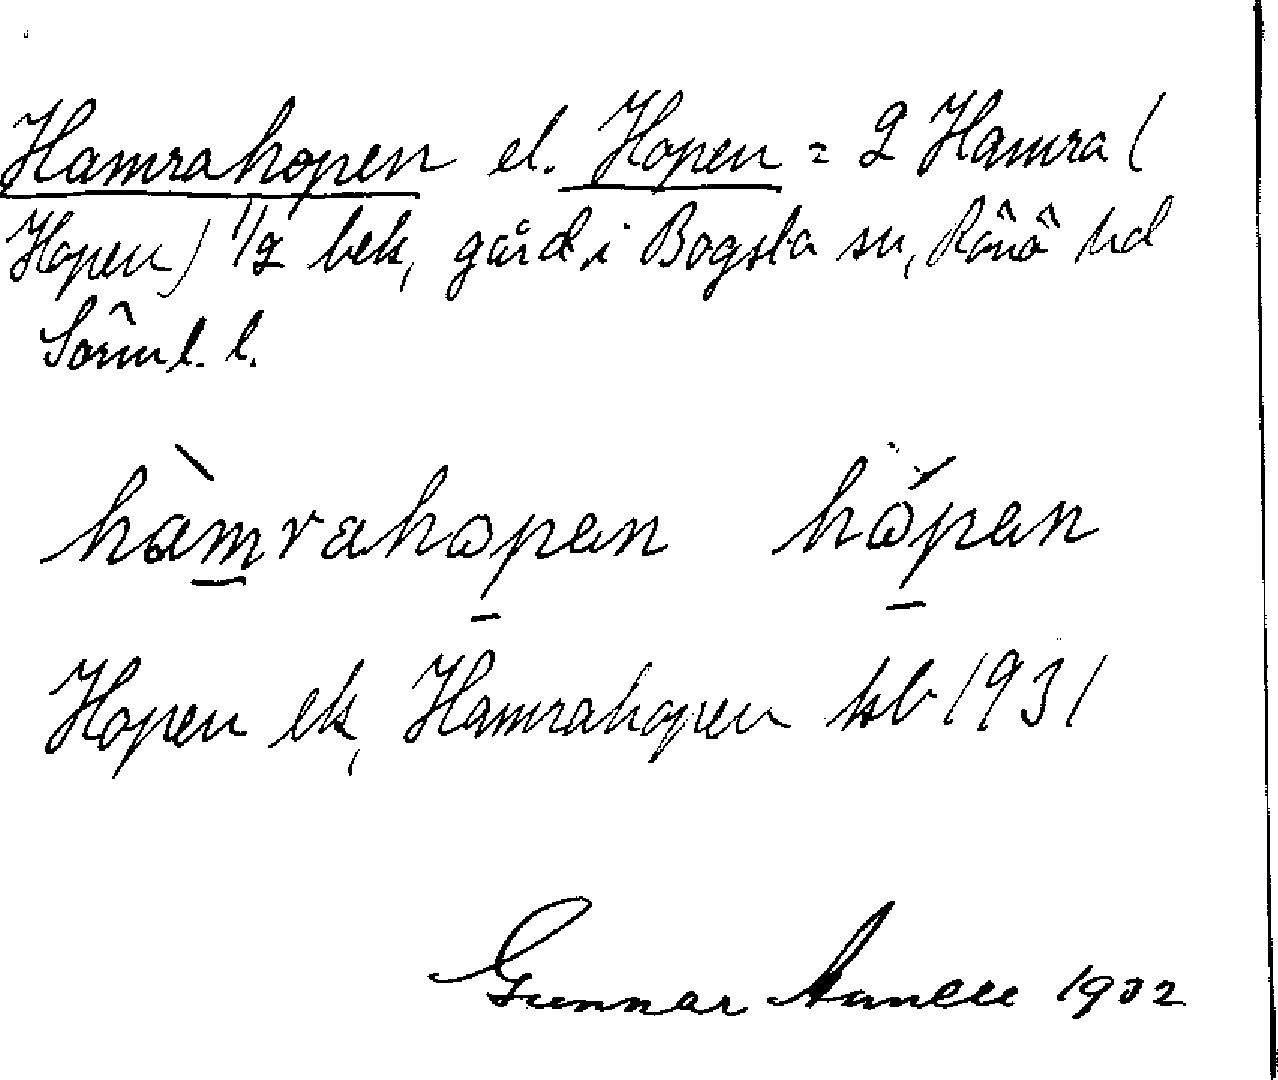 Hamrahopen el. Hopen = 2 Hamra (
Hopen) 1/2 bek, gård i Bogsta sn, Rönö hd
Sörml. l.
hàmrahopen hópen
Hopen ek, Hamrahopen kb 1931
Gunnar 1932